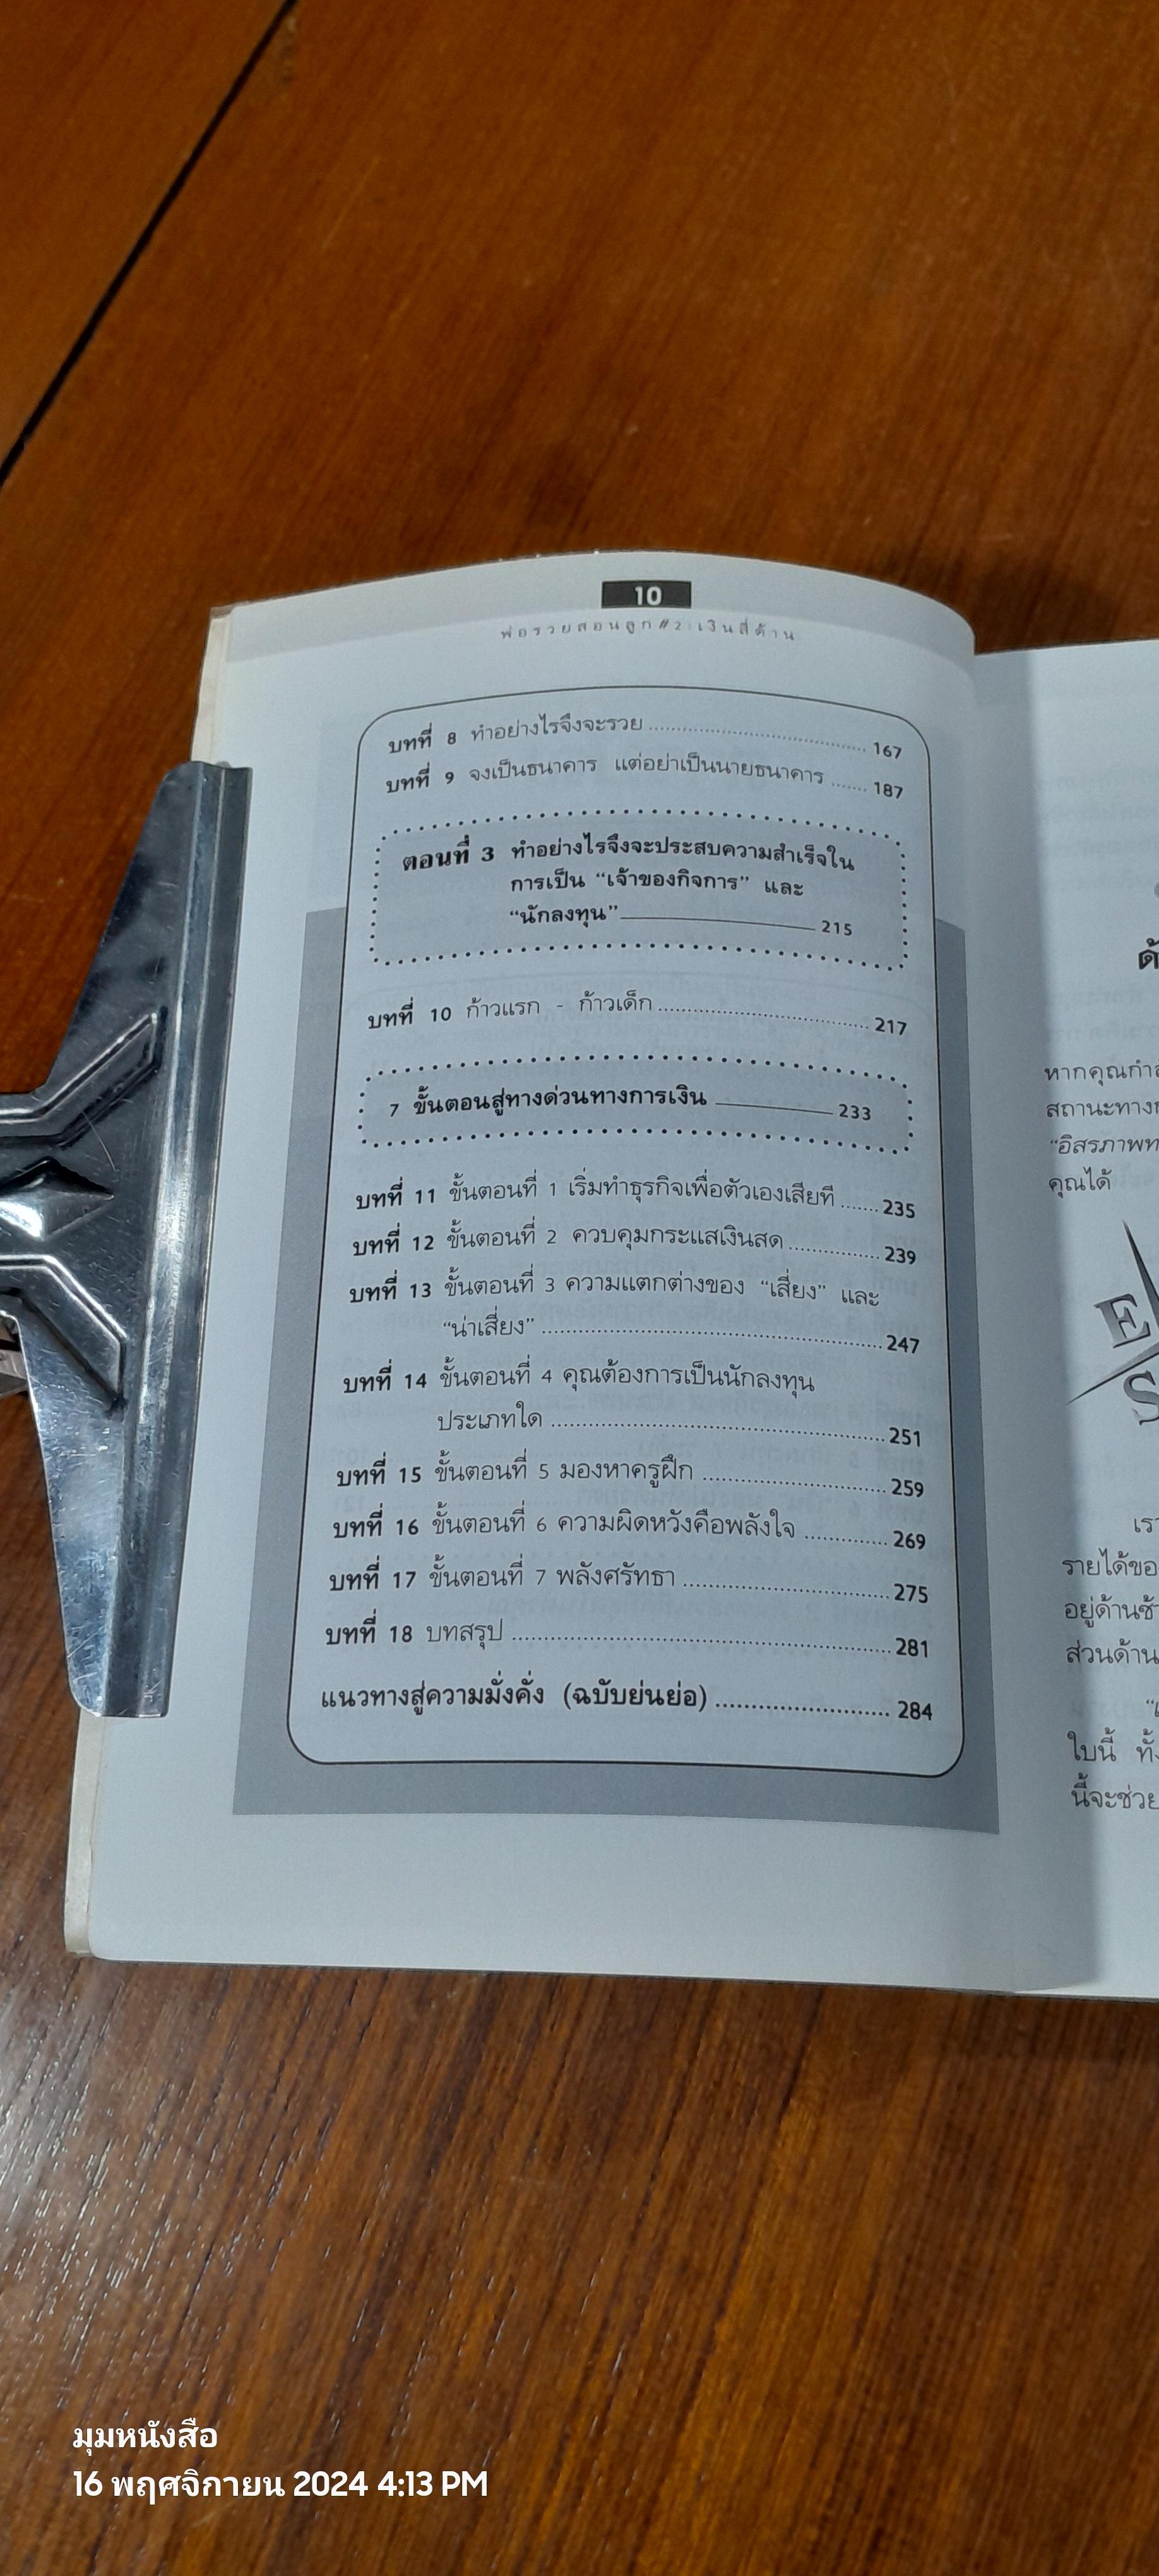 10
พ่อรวยสอนลูก#2:เงินสี่ด้าน
บทที่ 8 ทำอย่างไรจึงจะรวย .......... 167
บทที่ 9 จงเป็นธนาคาร แต่อย่าเป็นนายธนาคาร ....... 187
ตอนที่ 3 ทำอย่างไรจึงจะประสบความสำเร็จใน
การเป็น “เจ้าของกิจการ” และ
“นักลงทุน” 215
บทที่ 10 ก้าวแรก - ก้าวเด็ก .......... 217
7 ขั้นตอนสู่ทางด่วนทางการเงิน 233
บทที่ 11 ขั้นตอนที่ 1 เริ่มทำธุรกิจเพื่อตัวเองเสียที ....... 235
บทที่ 12 ขั้นตอนที่ 2 ควบคุมกระแสเงินสด .......... 239
บทที่ 13 ขั้นตอนที่ 3 ความแตกต่างของ “เสี่ยง” และ
“น่าเสี่ยง” .......... 247
บทที่ 14 ขั้นตอนที่ 4 คุณต้องการเป็นนักลงทุน
ประเภทใด .......... 251
บทที่ 15 ขั้นตอนที่ 5 มองหาครูฝึก .......... 259
บทที่ 16 ขั้นตอนที่ 6 ความผิดหวังคือพลังใจ .......... 269
บทที่ 17 ขั้นตอนที่ 7 พลังศรัทธา .......... 275
บทที่ 18 บทสรุป .......... 281
แนวทางสู่ความมั่งคั่ง (ฉบับย่นย่อ) .......... 284
หากคุณกำลั
สถานะทาง
“อิสรภาพท
คุณได้
E
S
เรา
รายได้ขอ
อยู่ด้านซ้า
ส่วนด้าน
ใบนี้ ทั้ง
นี้จะช่วย
มุมหนังสือ
16 พฤศจิกายน 2024 4:13 PM